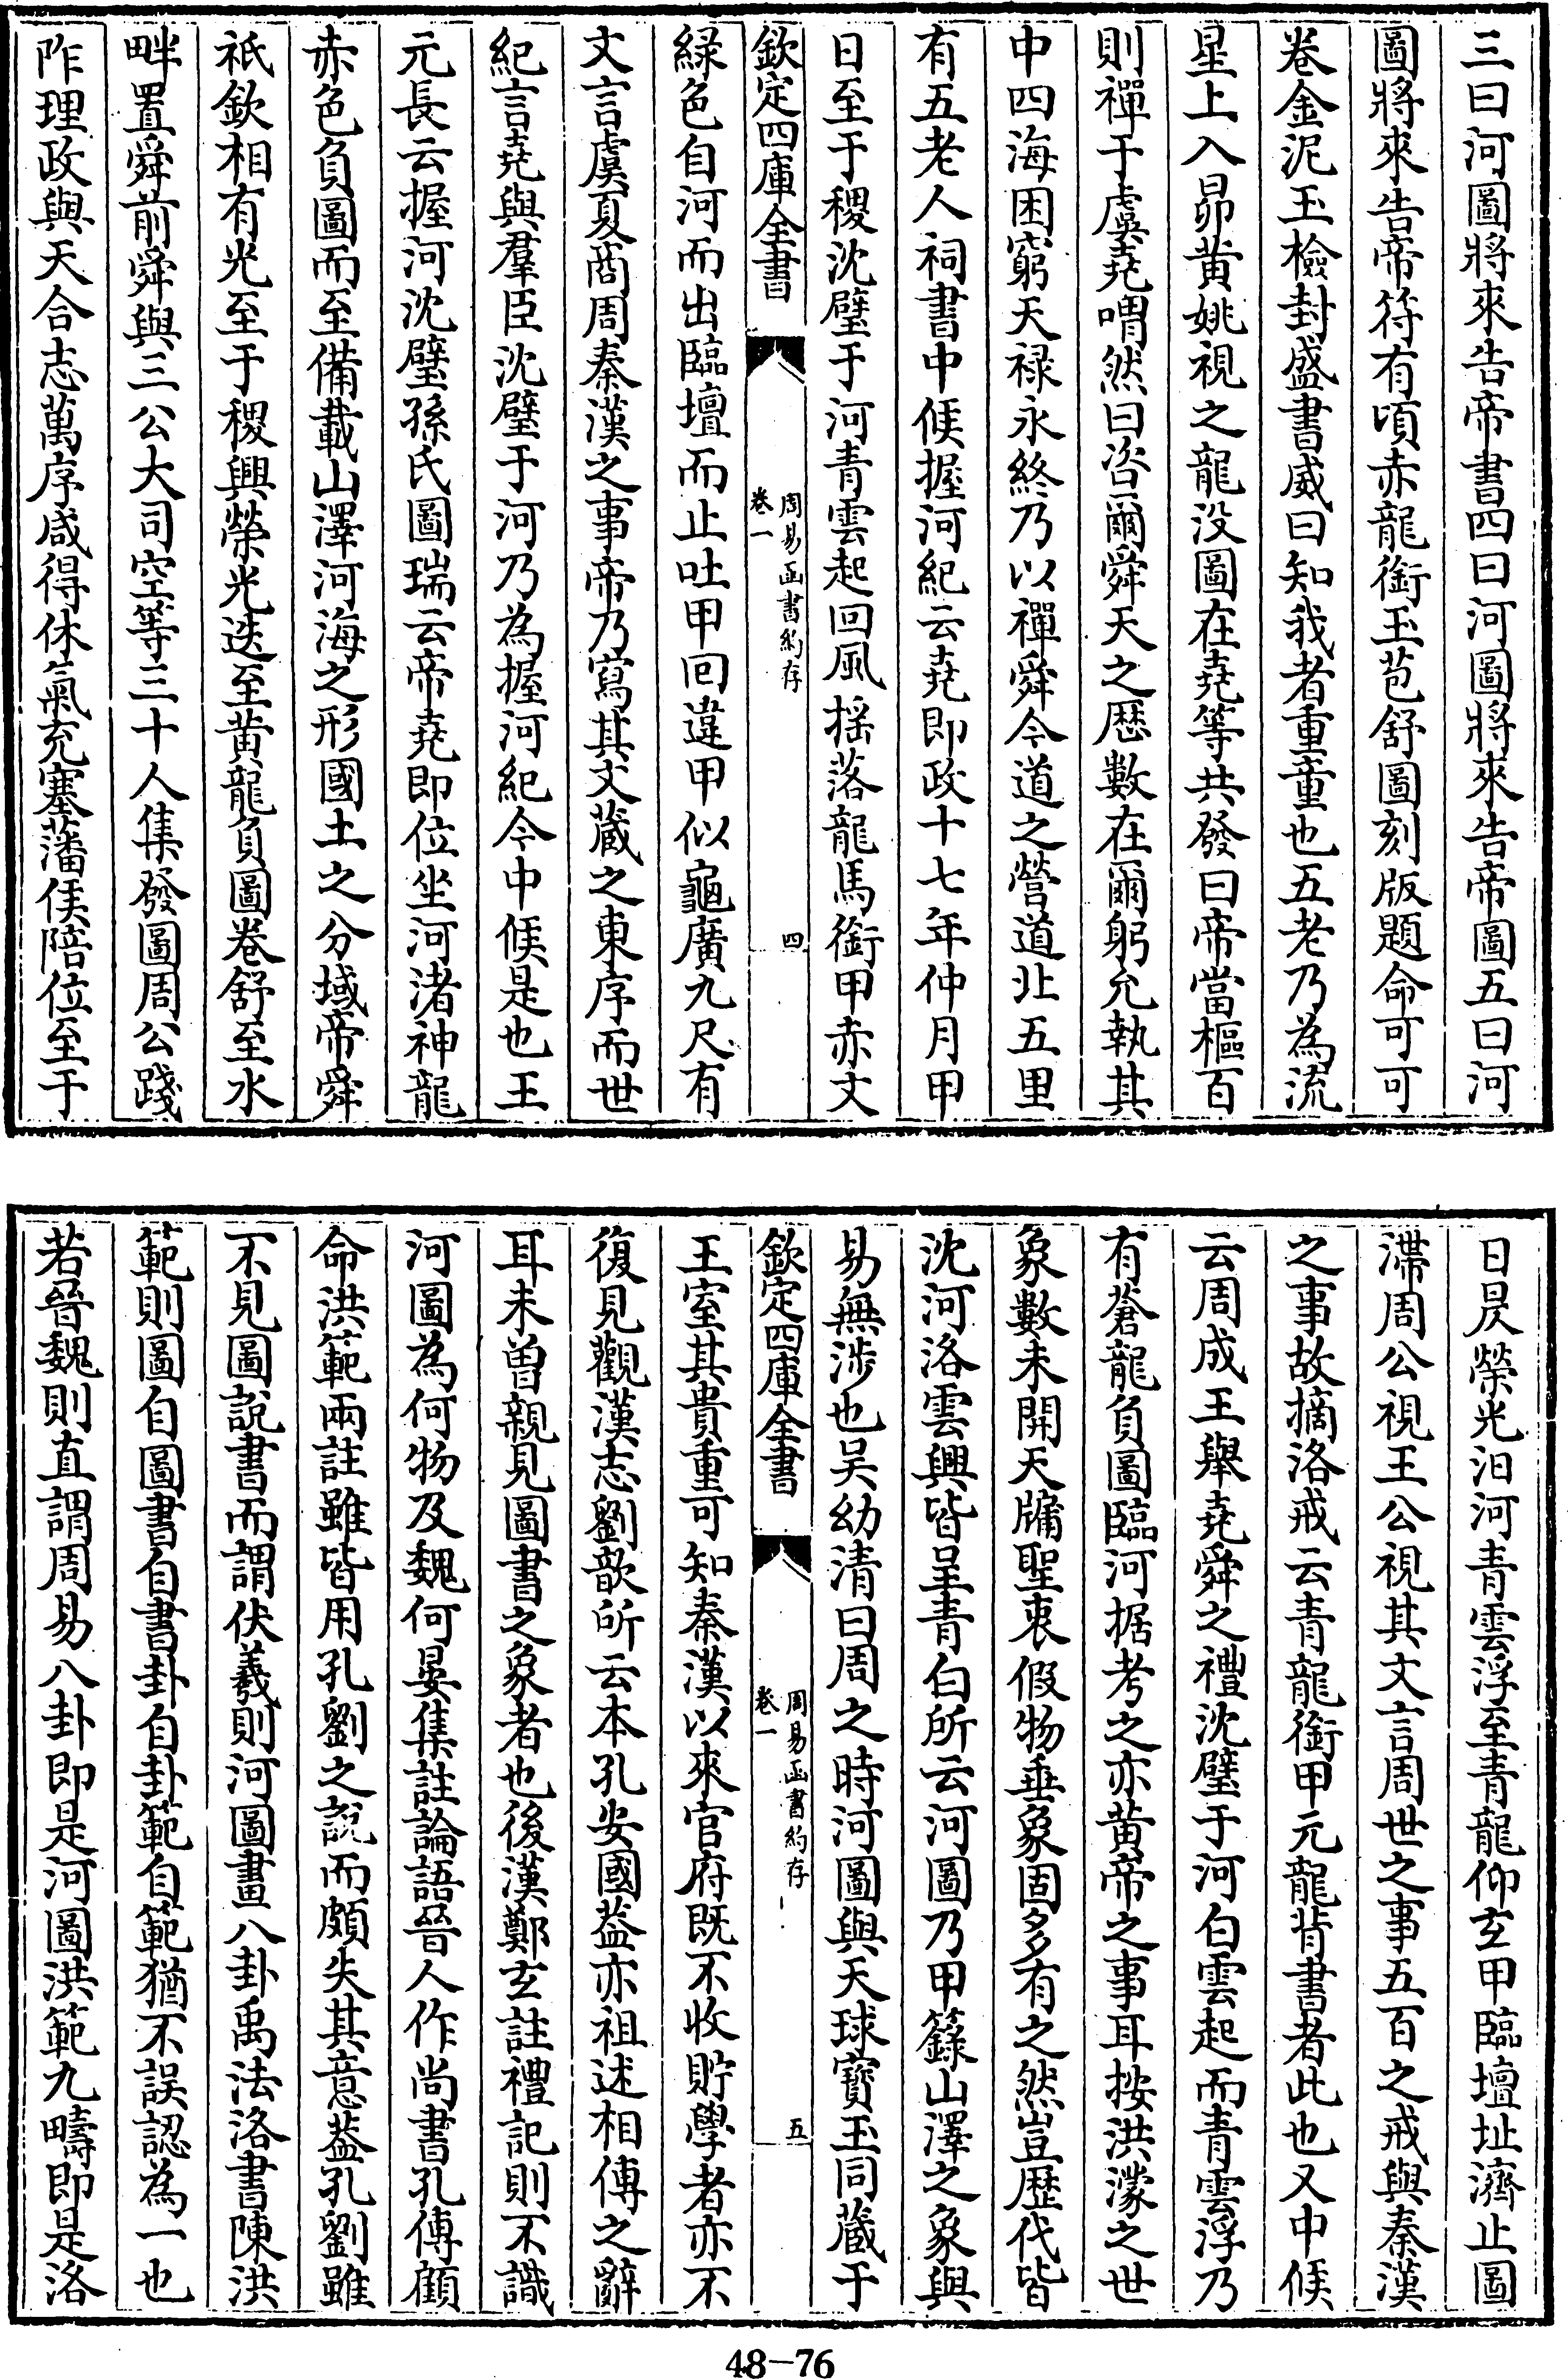 三曰河圖將來告帝書四曰河圖將來告帝圖五曰河
圖將來告帝符有頃赤龍銜玉苞舒圖刻版題命可可
卷金泥玉檢封盛書威曰知我者重童也五老乃為流
星上入昴黄姚視之龍没圖在堯等共發曰帝當樞百
則禪于虞堯喟然曰咨爾舜天之厯數在爾躬允執其
中四海困窮天禄永終乃以禪舜今道之營道北五里
有五老人祠書中候握河紀云堯即政十七年仲月甲
日至于稷沈璧于河青雲起回風摇落龍馬銜甲赤文
欽定四庫全書
周易函書約存
卷一
四
緑色自河而出臨壇而止吐甲回違甲似龜廣九尺有
文言虞夏商周秦漢之事帝乃寫其文藏之東序而世
紀言堯與羣臣沈璧于河乃為握河紀今中候是也王
元長云握河沈璧孫氏圖瑞云帝堯即位坐河渚神龍
赤色負圖而至備載山澤河海之形國土之分域帝舜
祇欽相有光至于稷興榮光迭至黄龍負圖卷舒至水
畔置舜前舜與三公大司空等三十人集發圖周公踐
阼理政與天合志萬序咸得休氣充塞藩侯陪位至于
日昃榮光汨河青雲浮至青龍仰玄甲臨壇址濟止圖
滯周公視王公視其文言周世之事五百之戒與秦漢
之事故摘洛戒云青龍銜甲元龍背書者此也又中候
云周成王舉堯舜之禮沈璧于河白雲起而青雲浮乃
有蒼龍負圖臨河据考之亦黄帝之事耳按洪濛之世
象數未開天牖聖衷假物垂象固多有之然豈歴代皆
沈河洛雲興皆呈青白所云河圖乃甲籙山澤之象與
易無涉也吴幼清曰周之時河圖與天球寳玉同藏于
欽定四庫全書
周易函書約存
卷一
五
王室其貴重可知秦漢以來官府既不收貯學者亦不
復見觀漢志劉歆所云本孔安國葢亦祖述相傳之辭
耳未曾親見圖書之象者也後漢鄭玄註禮記則不識
河圖為何物及魏何晏集註論語晉人作尚書孔傳顧
命洪範兩註雖皆用孔劉之說而頗失其意葢孔劉雖
不見圖說書而謂伏羲則河圖畫八卦禹法洛書陳洪
範則圖自圖書自書卦自卦範自範猶不誤認為一也
若晉魏則直謂周易八卦即是河圖洪範九疇即是洛
48-76